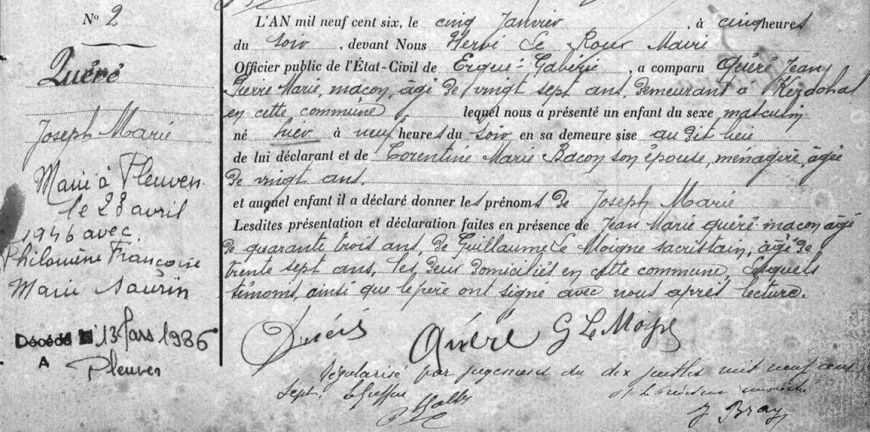 N° 2
Quéré
Joseph Marie
Marié à Pleuven
le 28 avril
1946 avec
Philomène Françoise
Marie Naurin
Décédé le 13 Mars 1986
A Pleuven
L'AN mil neuf cent six, le cinq Janvier, à cinq heures
du soir, devant Nous Hervé Le Roux Maire
Officier public de l'État-Civil de Ergué-Gabéric, a comparu Quéré Jean
Pierre Marie, maçon, âgé de vingt sept ans, demeurant à Kerdohal
en cette commune lequel nous a présenté un enfant du sexe masculin
né hier à neuf heures du soir en sa demeure sise au dit lieu
de lui déclarant et de Corentine Marie Bacon son épouse, ménagère, âgée
de vingt ans.
et auquel enfant il a déclaré donner les prénoms de Joseph Marie
Lesdites présentation et déclaration faites en présence de Jean Marie Quéré maçon âgé
de quarante trois ans, de Guillaume Le Moigne sacristain, âgé de
trente sept ans, les deux domiciliés en cette commune, lesquels
témoins, ainsi que le père ont signé avec nous après lecture.
Quéré Quéré G Le Moigne
Régularisé par jugement du dix juillet mil neuf cent
sept. Le Greffier
J Bray